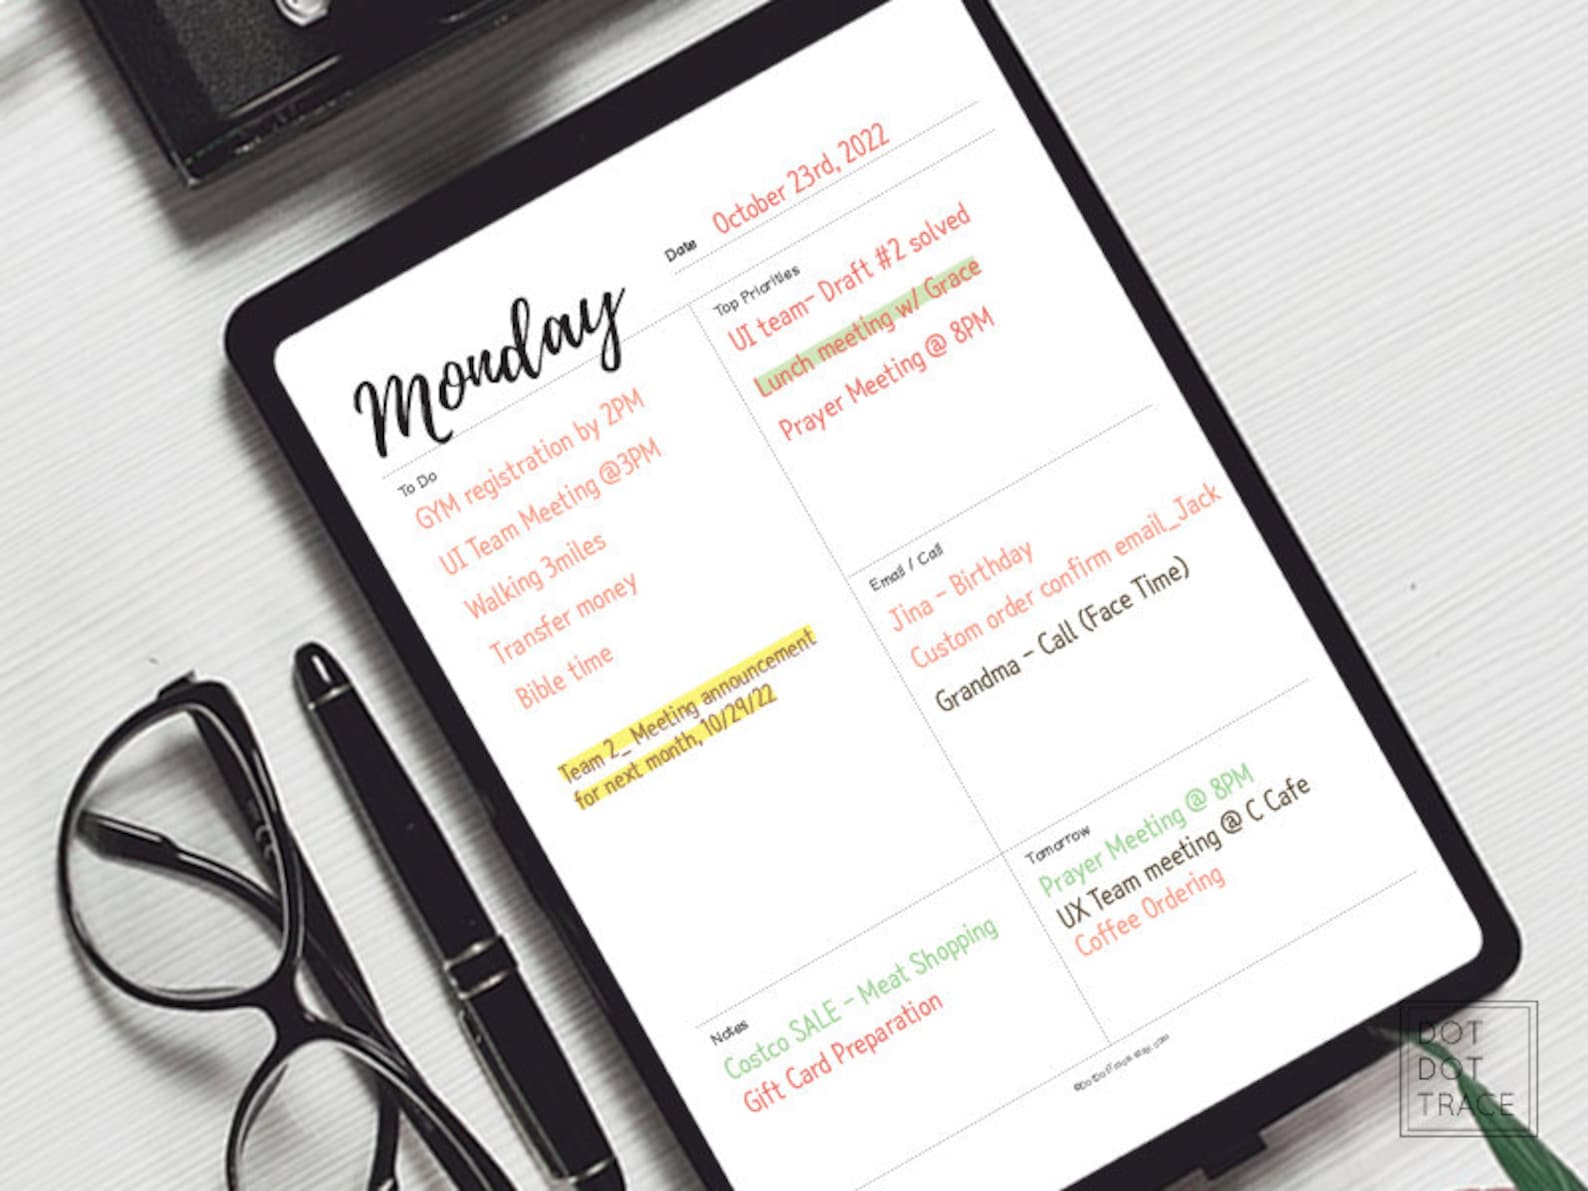 Monday
Date October 23rd, 2022
To Do
GYM registration by 2PM
UI Team Meeting @3PM
Walking 3miles
Transfer money
Bible time
Team 2_ Meeting announcement
for next month, 10/29/22
Top Priorities
UI team- Draft #2 solved
Lunch meeting w/ Grace
Prayer Meeting @ 8PM
Email / Call
Jina - Birthday
Custom order confirm email_Jack
Grandma - Call (Face Time)
Notes
Costco SALE - Meat Shopping
Gift Card Preparation
Tomorrow
Prayer Meeting @ 8PM
UX Team meeting @ C Cafe
Coffee Ordering
DOT
DOT
TRACE